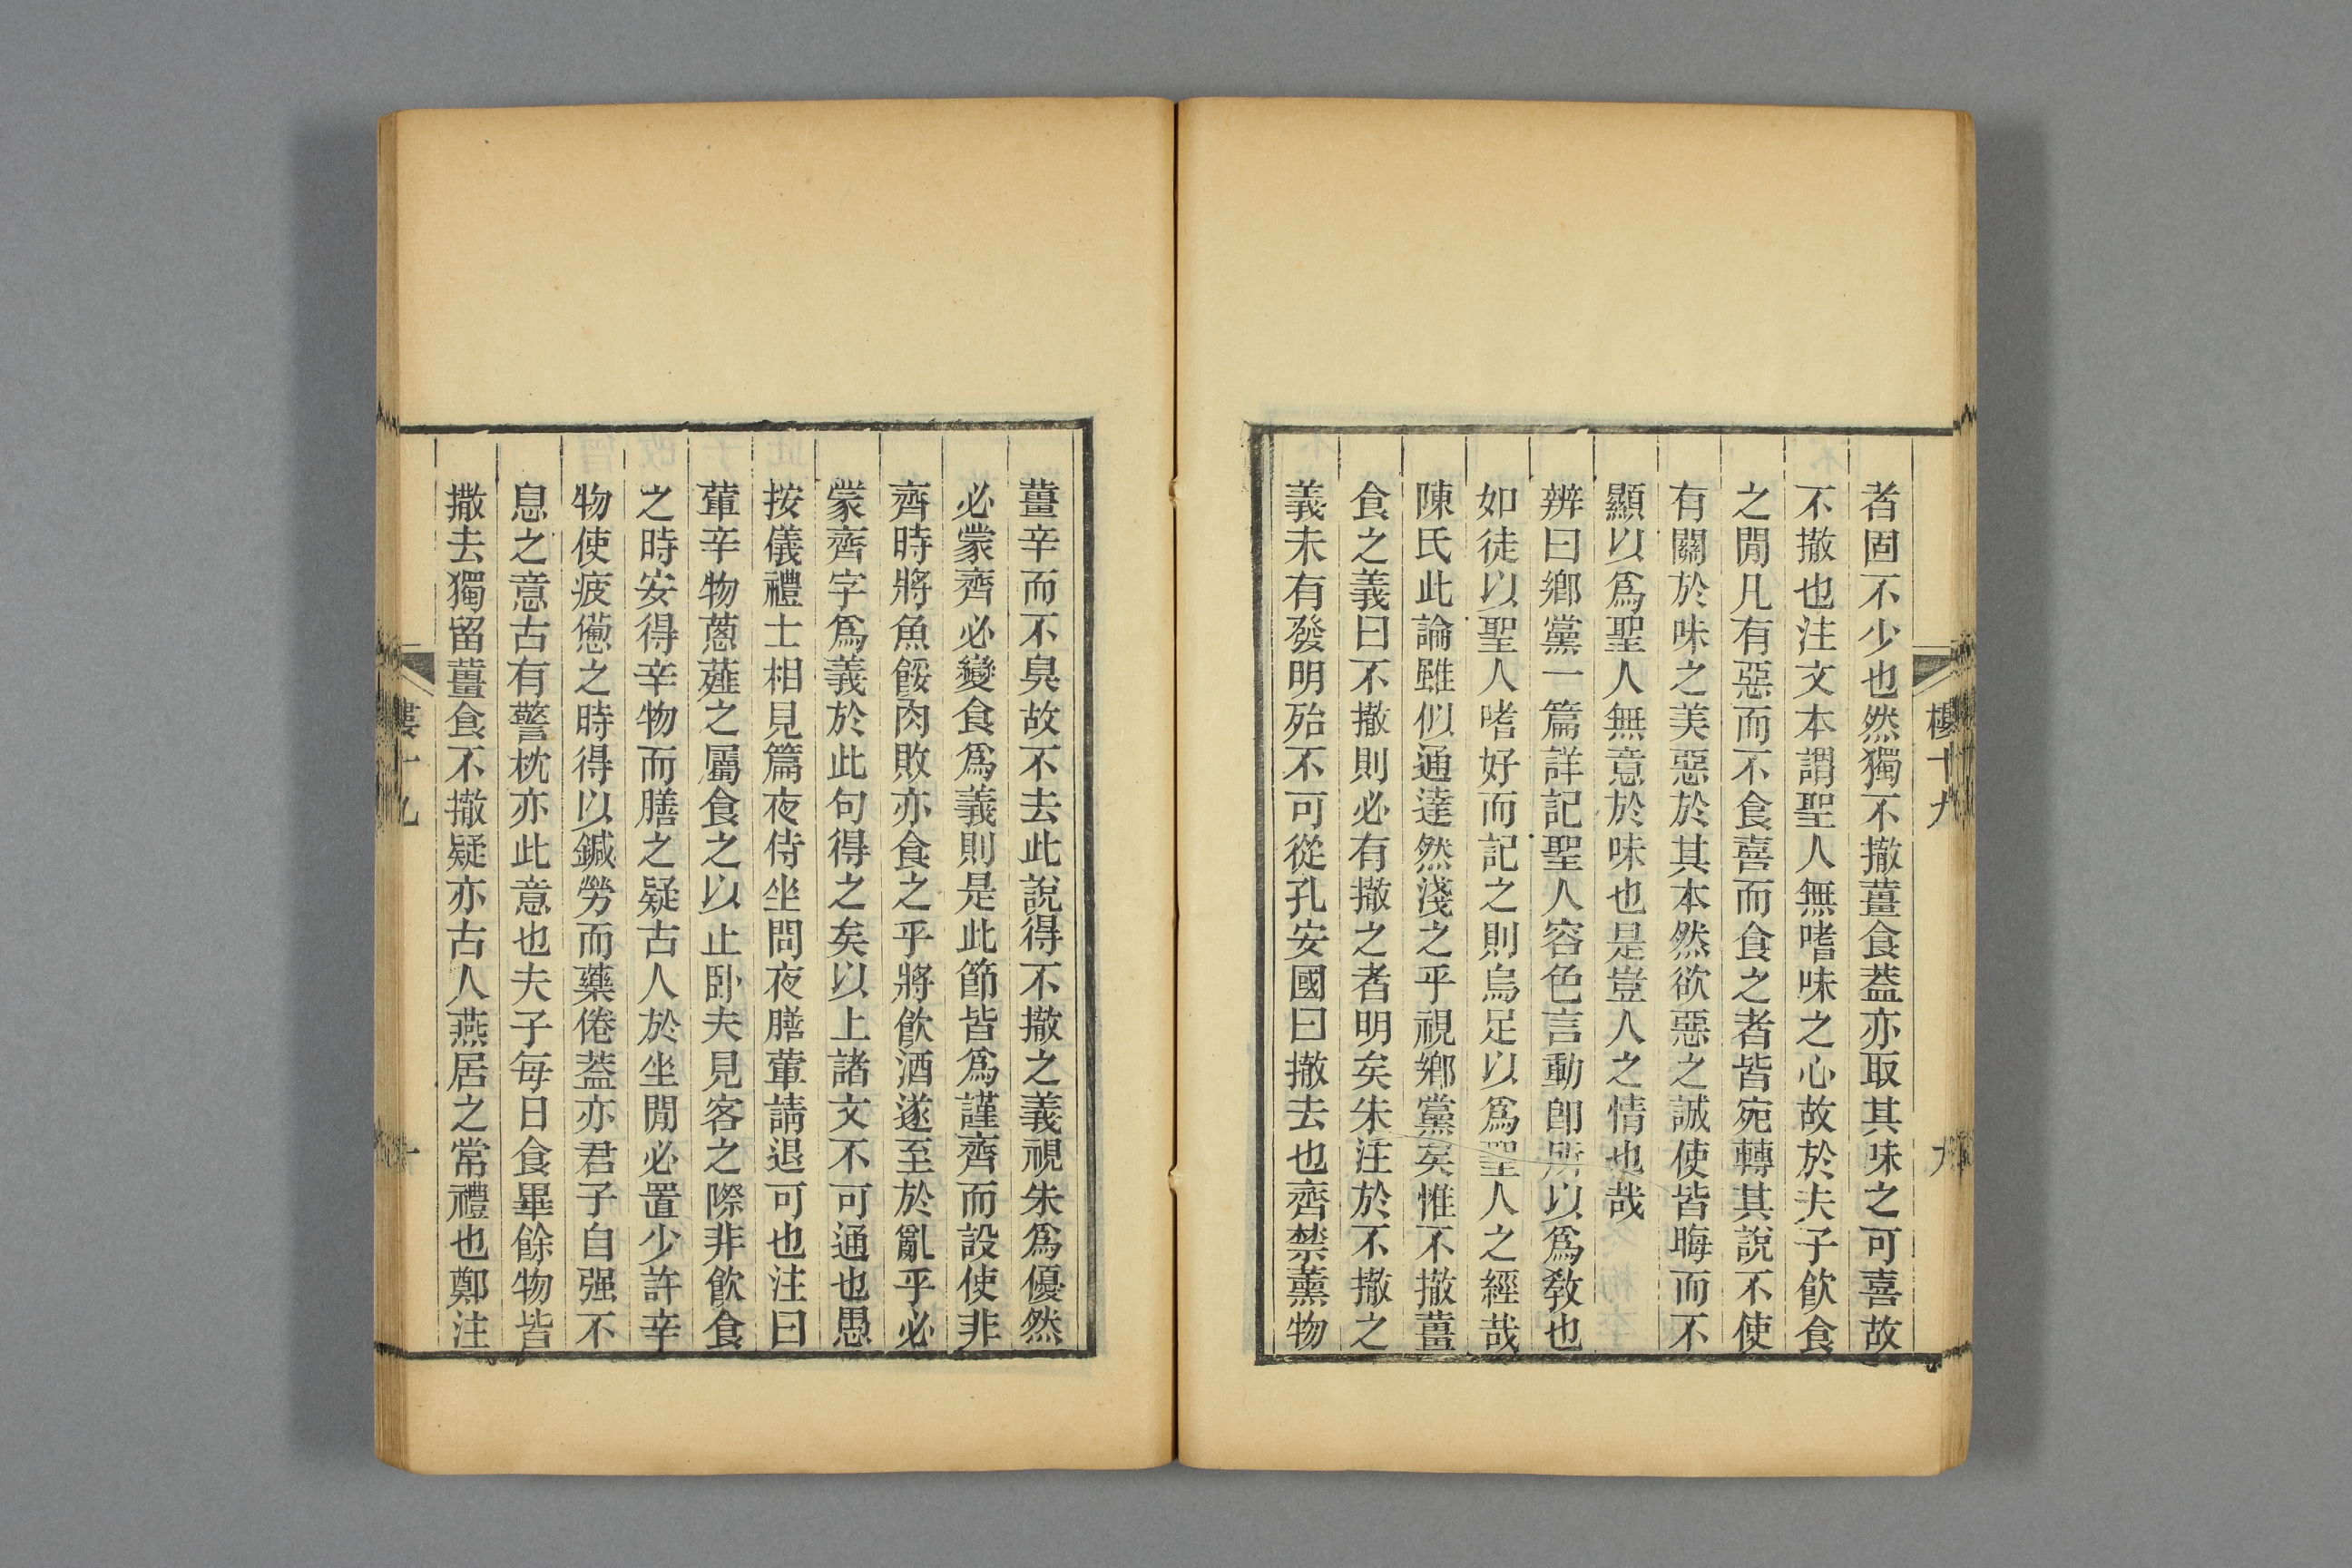 者固不少也然獨不撤薑食葢亦取其味之可喜故
不撤也注文本謂聖人無嗜味之心故於夫子飮食
之閒凡有惡而不食喜而食之者皆宛轉其說不使
有關於味之美惡於其本然欲惡之誠使皆晦而不
顯以爲聖人無意於味也是豈人之情也哉
辨曰鄕黨一篇詳記聖人容色言動卽所以爲敎也
如徒以聖人嗜好而記之則烏足以爲聖人之經哉
陳氏此論雖似通達然淺之乎視鄕黨矣惟不撤薑
食之義曰不撤則必有撤之者明矣朱注於不撤之
義未有發明殆不可從孔安國曰撤去也齊禁薰物
樓十九
九
薑辛而不臭故不去此說得不撤之義視朱爲優然
必蒙齊必變食爲義則是此節皆爲謹齊而設使非
齊時將魚餒肉敗亦食之乎將飮酒遂至於亂乎必
蒙齊字爲義於此句得之矣以上諸文不可通也愚
按儀禮士相見篇夜侍坐問夜膳葷請退可也注曰
葷辛物蔥薤之屬食之以止卧夫見客之際非飮食
之時安得辛物而膳之疑古人於坐閒必置少許辛
物使疲憊之時得以鍼勞而藥倦葢亦君子自强不
息之意古有警枕亦此意也夫子每日食畢餘物皆
撤去獨留薑食不撤疑亦古人燕居之常禮也鄭注
十九
十